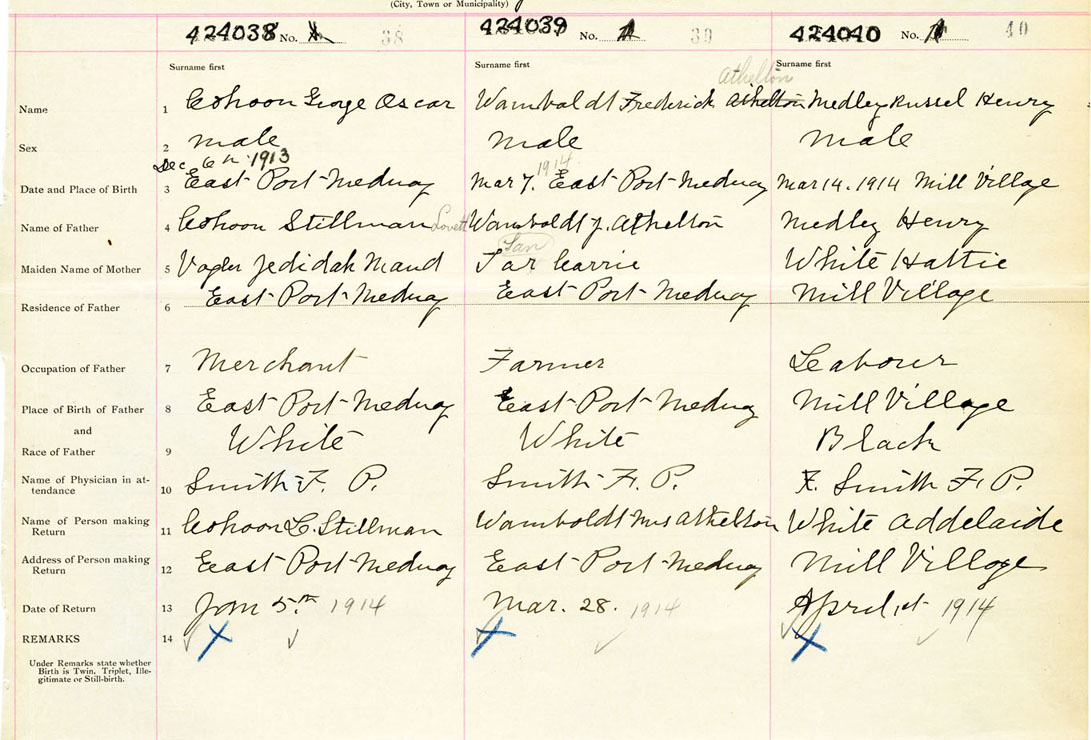 (City, Town or Municipality)
424038 No. 1 38
424039 No. 1 39
424040 No. 1 40
Surname first Surname first Surname first
Athelton
Name 1 Cohoon George Oscar Wamboldt Frederick Athelton Medley Russel Henry
Sex 2 male male male
Dec 6th 1913 1914
Date and Place of Birth 3 East Port Medway Mar 7. East Port Medway Mar 14. 1914 Mill Village
Name of Father 4 Cohoon Stillman Lovett Wamboldt J. Athelton Medley Henry
Maiden Name of Mother 5 Vogler Jedidah Maud Tar Carrie White Hattie
Residence of Father 6 East Port Medway East Port Medway Mill Village
Occupation of Father 7 Merchant Farmer Leabourer
Place of Birth of Father 8 East Port Medway East Port Medway Mill Village
and
Race of Father 9 White White Black
Name of Physician in at-
tendance 10 Smith F. P. Smith F. P. Smith F. P.
Name of Person making
Return 11 Cohoon L. Stillman Wamboldt Mrs Athelton White Addelaide
Address of Person making
Return 12 East Port Medway East Port Medway Mill Village
Date of Return 13 Jan 5th 1914 Mar. 28. 1914 April 1st 1914
REMARKS 14
Under Remarks state whether
Birth is Twin, Triplet, Ille-
gitimate or Still-birth.